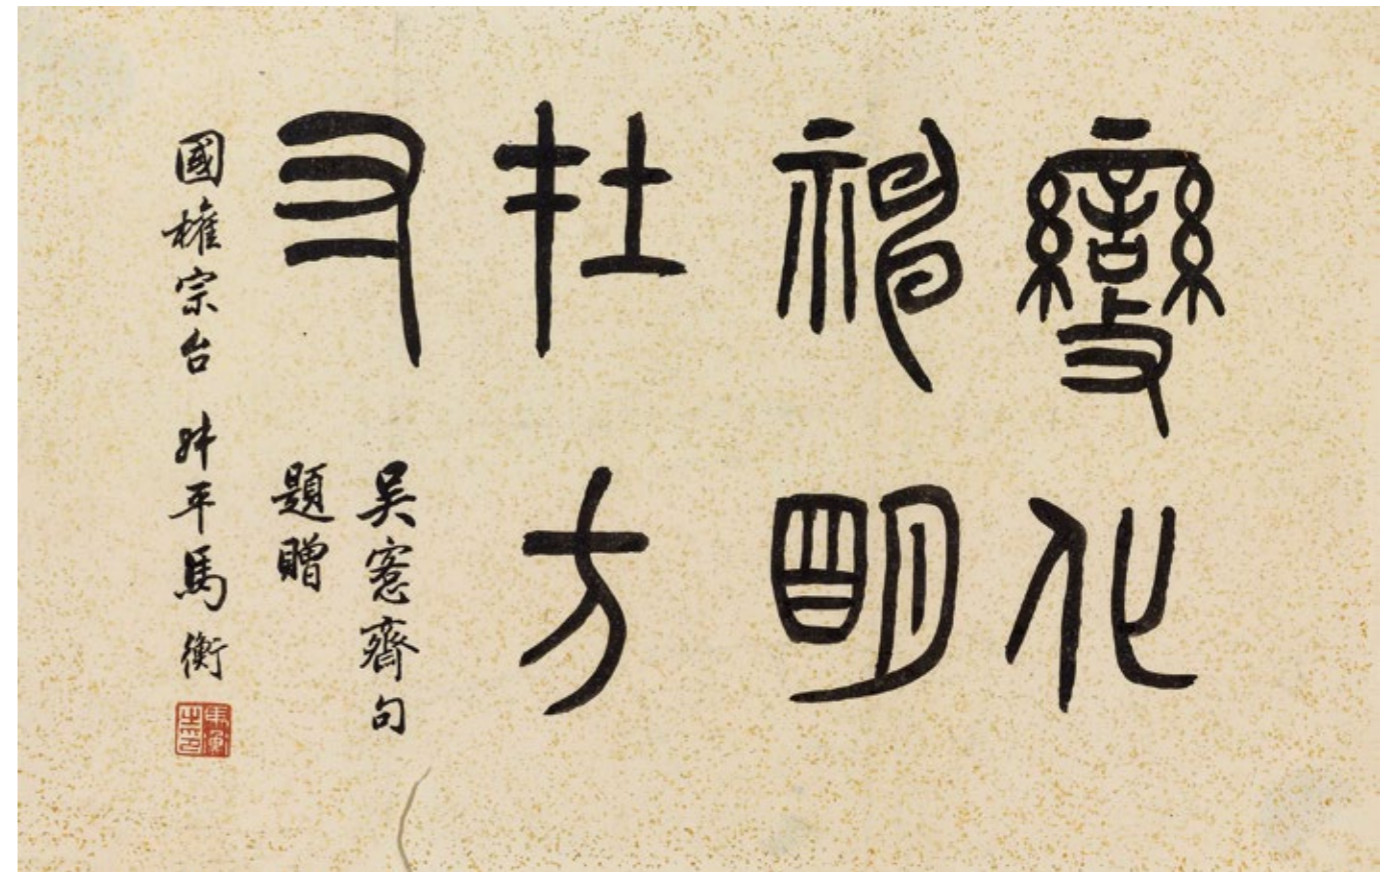 變化
神明
在方
寸
吳愙齋句
題贈
國權宗台 叔平馬衡
馬衡之印